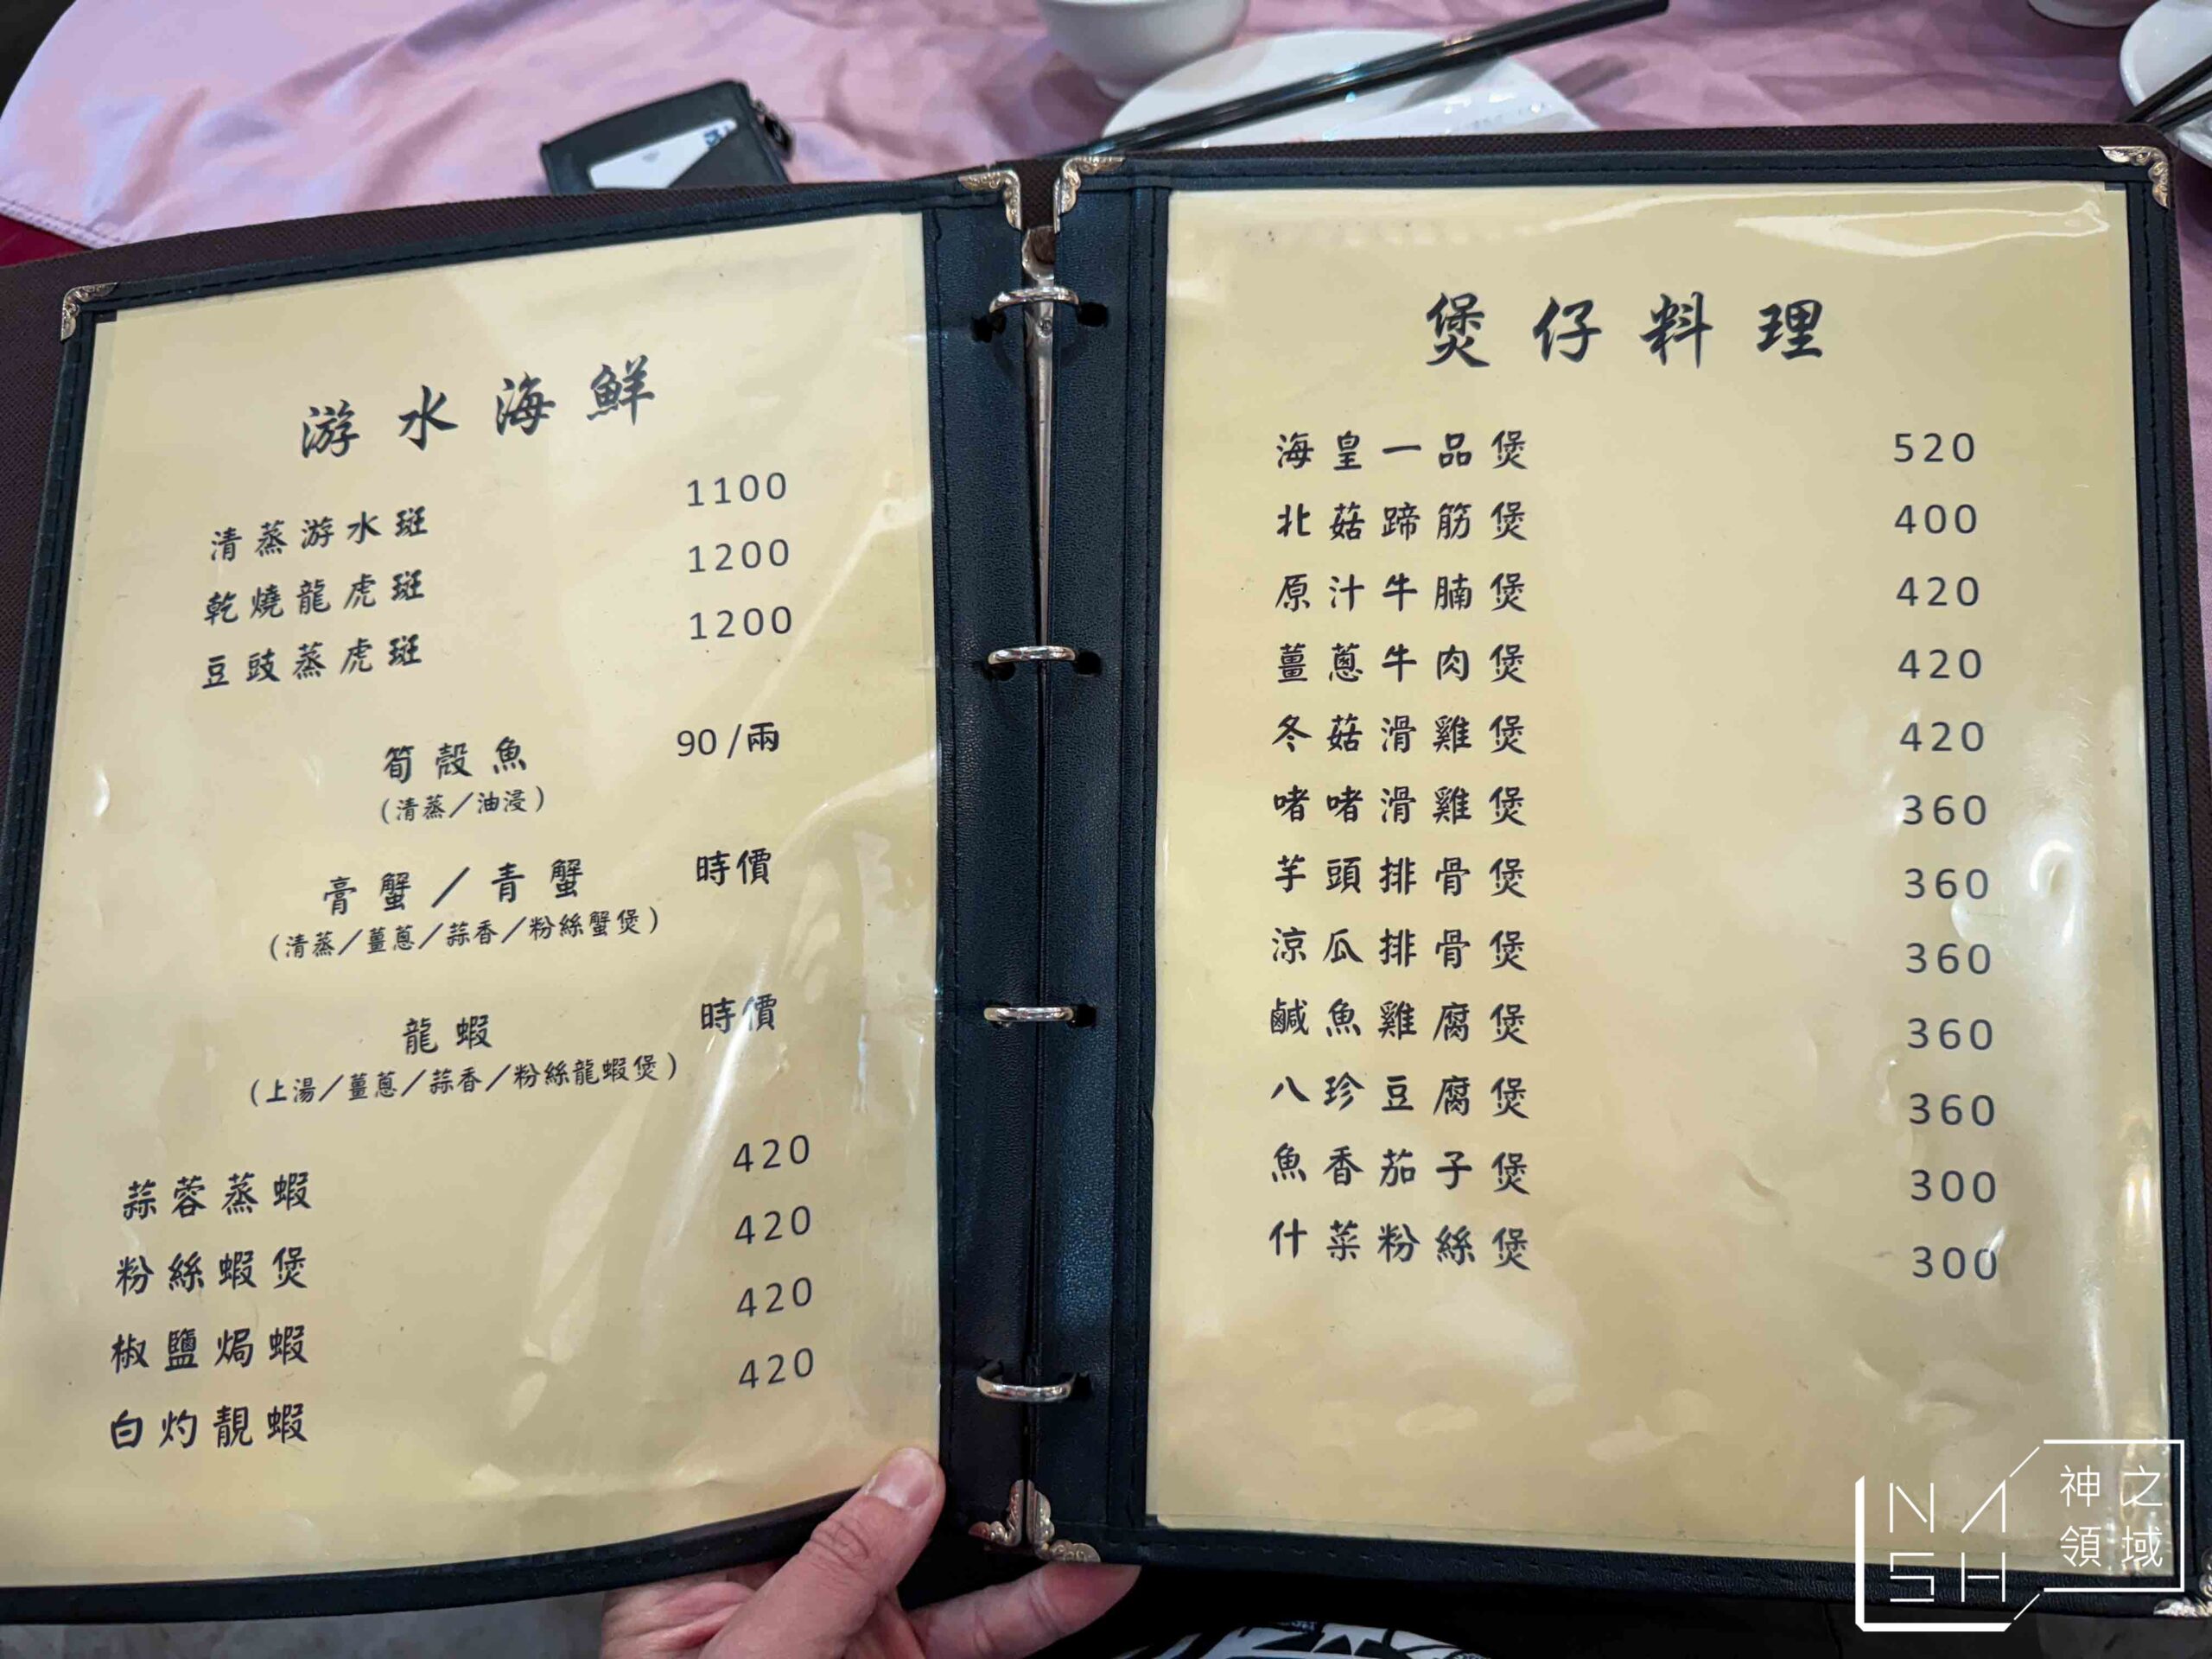 游水海鮮
清蒸游水斑 1100
乾燒龍虎斑 1200
豆豉蒸虎斑 1200
筍殼魚 90/兩
(清蒸/油浸)
膏蟹/青蟹 時價
(清蒸/薑蔥/蒜香/粉絲蟹煲)
龍蝦 時價
(上湯/薑蔥/蒜香/粉絲龍蝦煲)
蒜蓉蒸蝦 420
粉絲蝦煲 420
椒鹽焗蝦 420
白灼靚蝦 420
煲仔料理
海皇一品煲 520
北菇蹄筋煲 400
原汁牛腩煲 420
薑蔥牛肉煲 420
冬菇滑雞煲 420
啫啫滑雞煲 360
芋頭排骨煲 360
涼瓜排骨煲 360
鹹魚雞腐煲 360
八珍豆腐煲 360
魚香茄子煲 300
什菜粉絲煲 300
NASH
神之領域